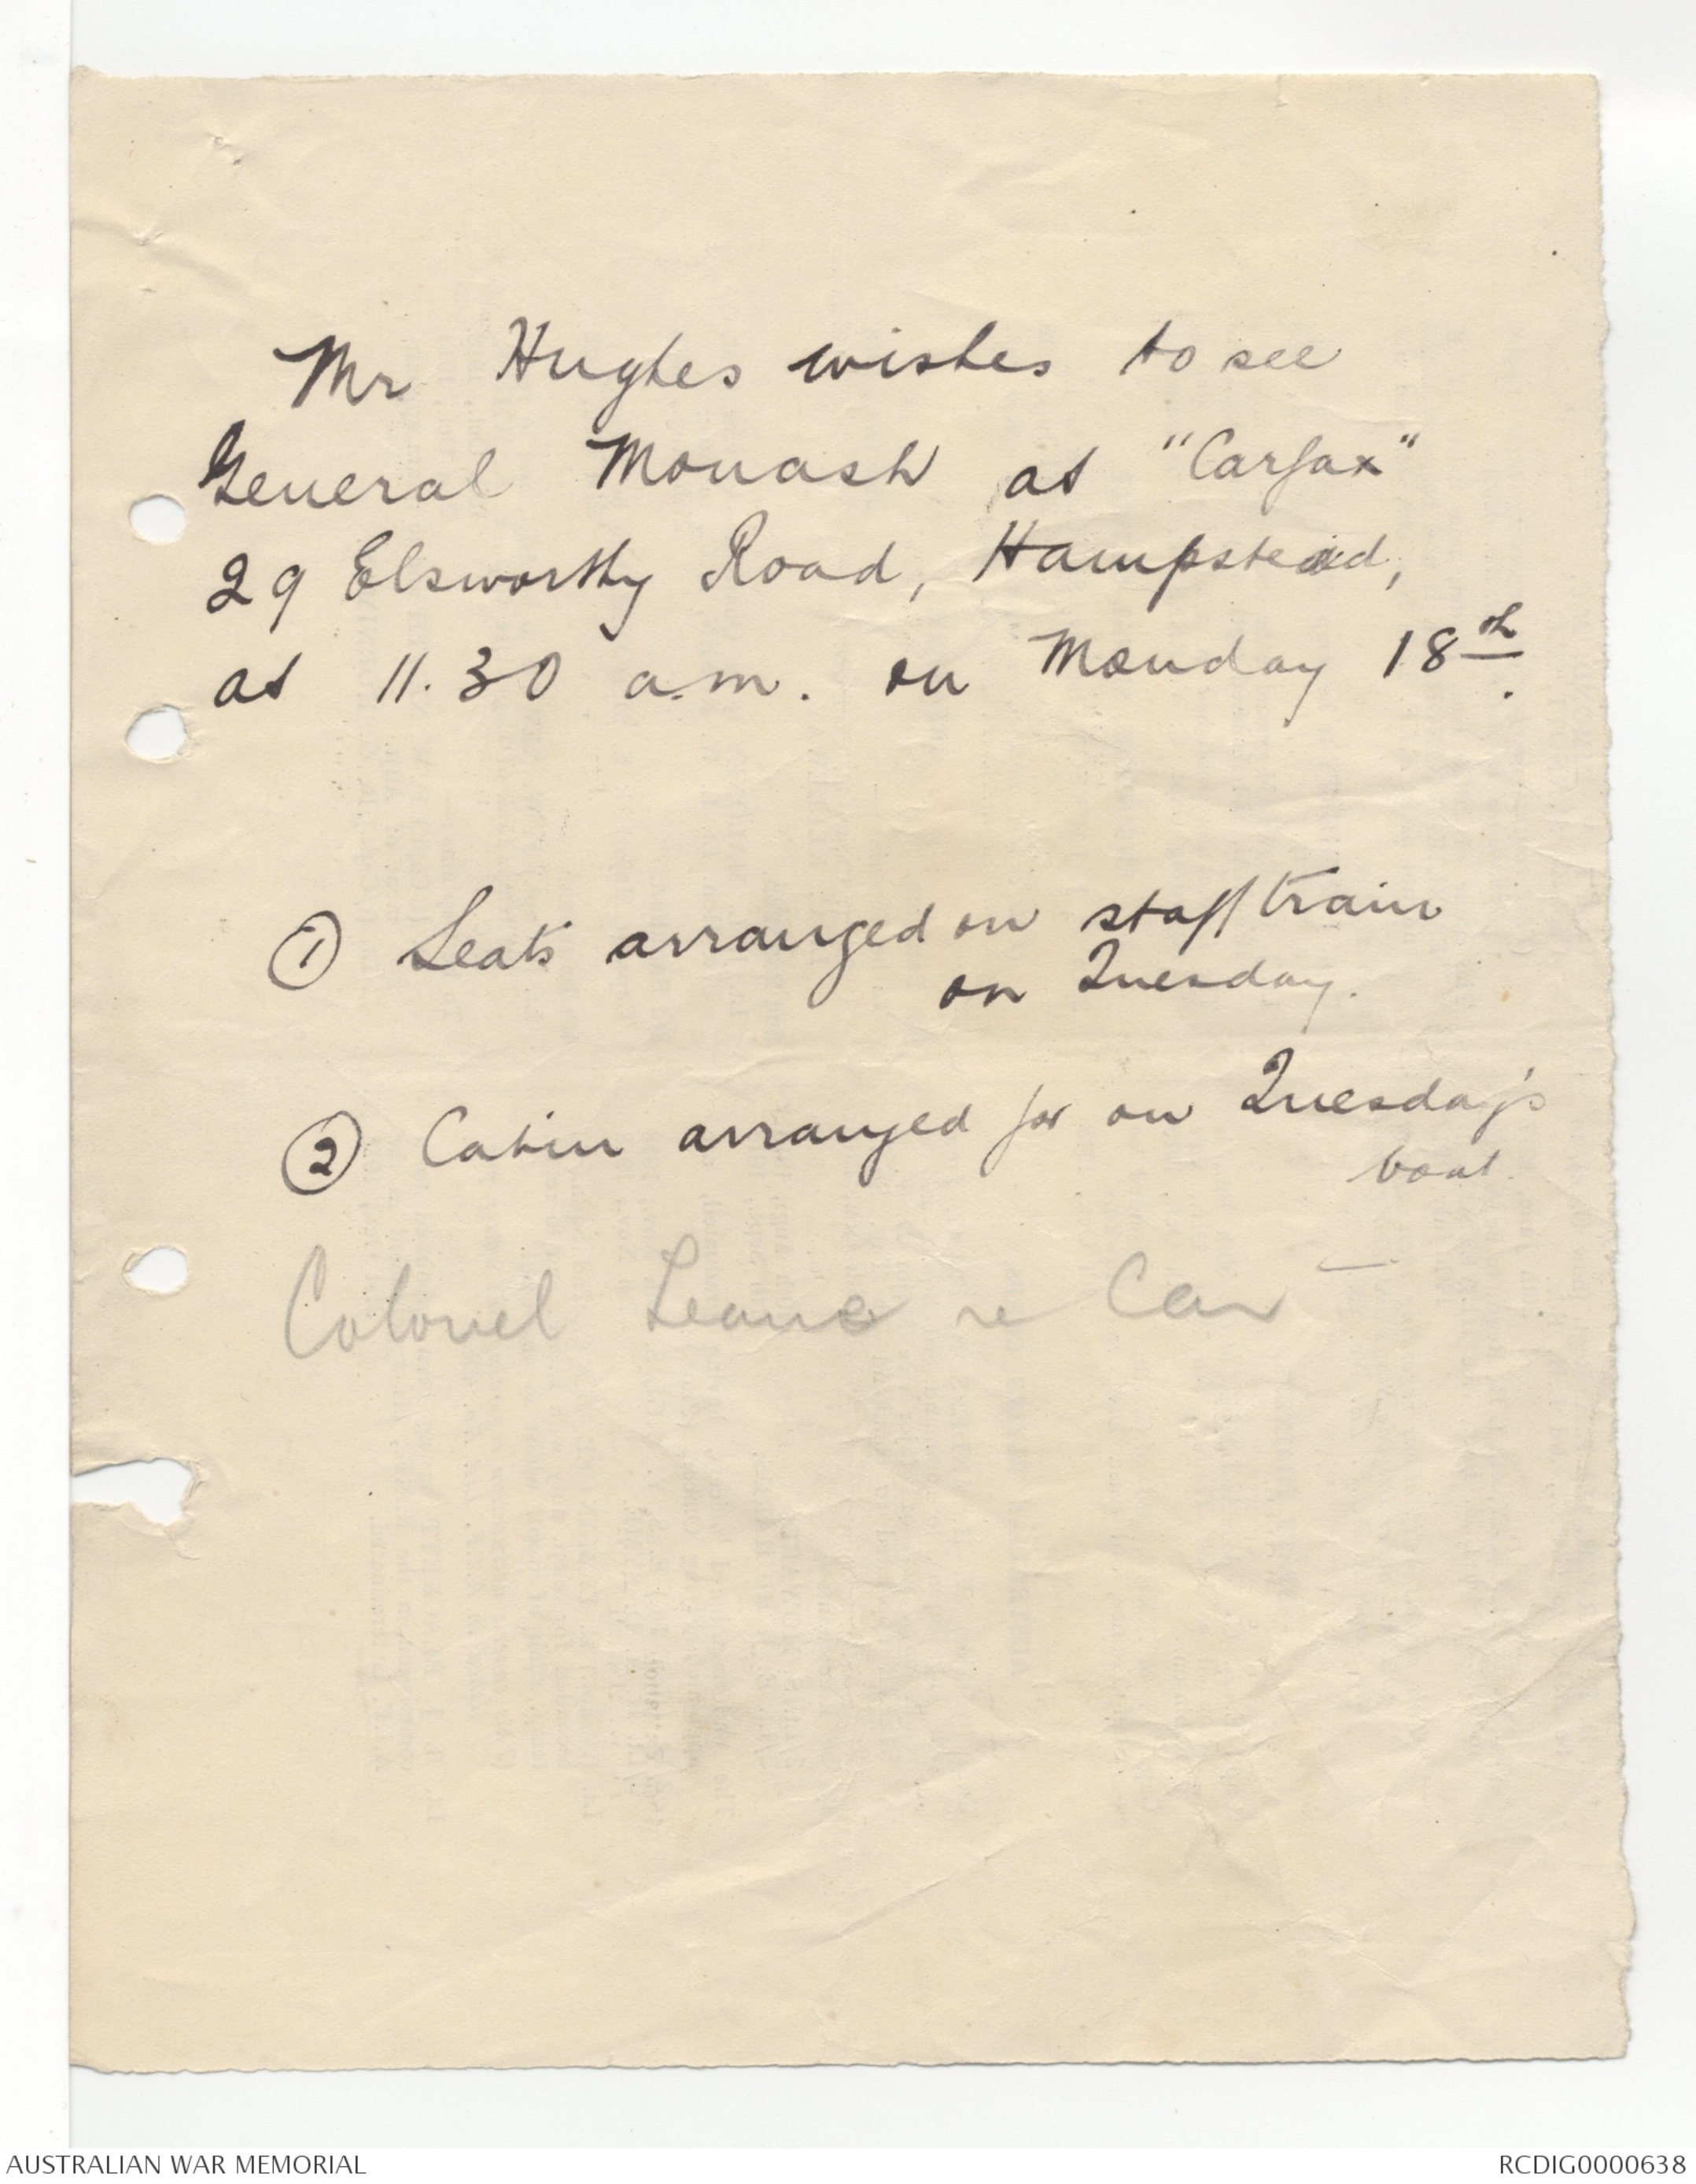 Mr Hughes wishes to see
General Monash at "Carfax"
29 Elsworthy Road, Hampstead,
at 11.30 a.m. on Monday 18th.
① Seats arranged on staff train
on Tuesday.
② Cabin arranged for on Tuesday's
boat.
Colonel Leane re Car
AUSTRALIAN WAR MEMORIAL
RCDIG0000638